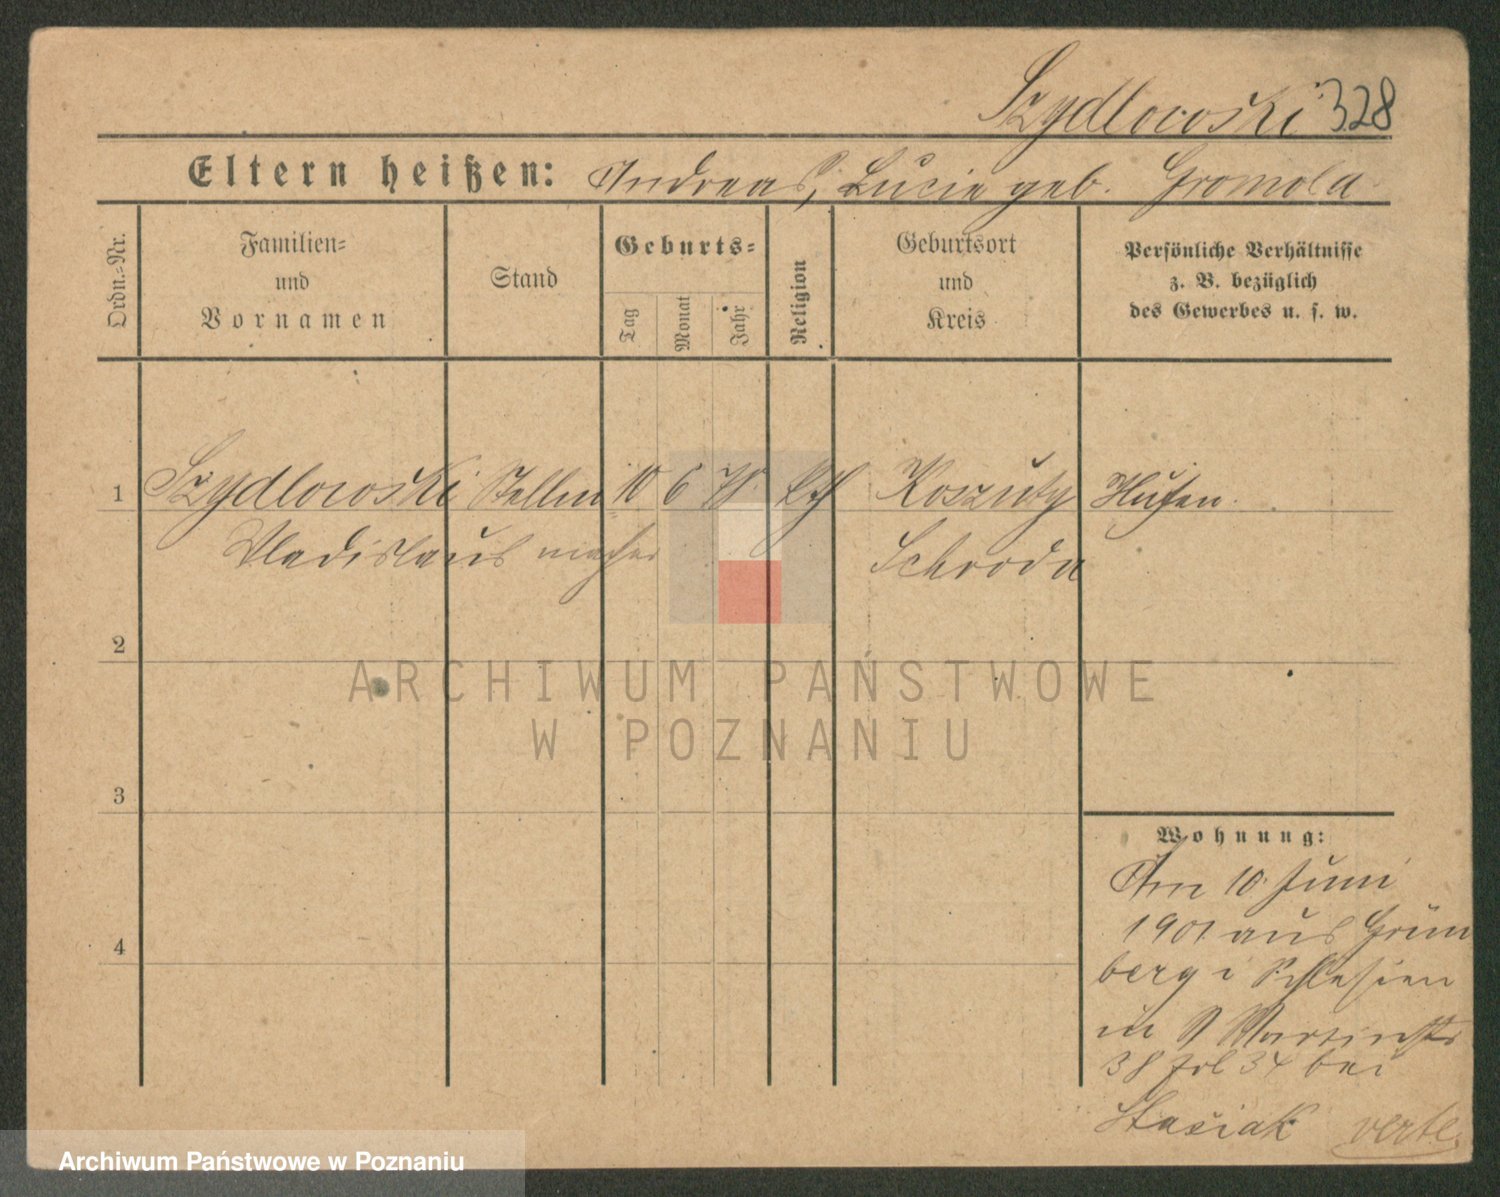 Szydlowski 328
Eltern heißen: Andreas, Lucie geb. Gromola
Ordn.-Nr.
Familien-
und
Vornamen
Stand
Geburts-
Tag
Monat
Jahr
Religion
Geburtsort
und
Kreis
Persönliche Verhältnisse
z. B. bezüglich
des Gewerbes u. s. w.
1 Szydlowski Stellm 10 6 Kth Koszuty
Vladislaus macher Schroda
2
3
4
Wohnung:
Am 10. Juni
1901 aus Grün
berg i Schlesien
in St Martinstr
38 bei
Stasiak verte.
ARCHIWUM PAŃSTWOWE
W POZNANIU
Archiwum Państwowe w Poznaniu